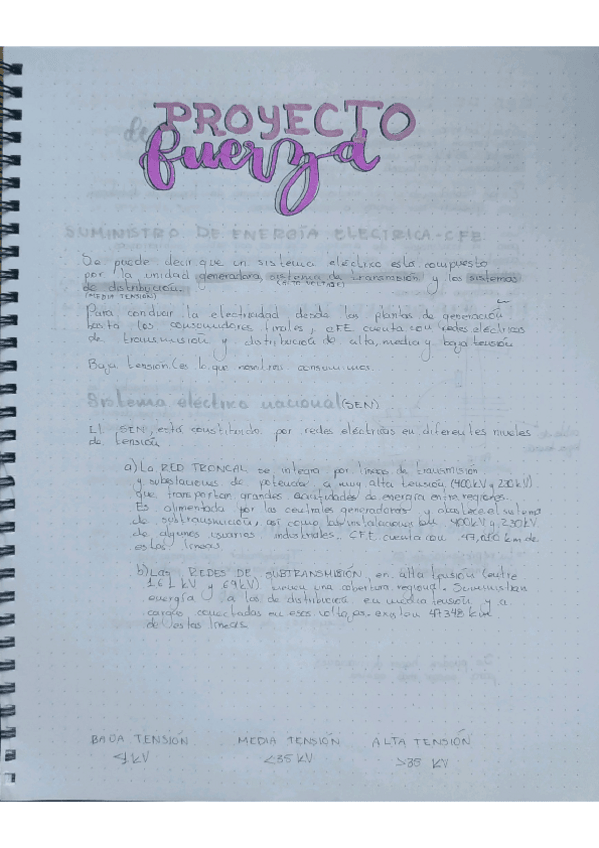 PROYECTO
de fuerza
SUMINISTRO DE ENERGÍA ELECTRICA-CFE
Se puede decir que un sistema eléctrico esta compuesto
por la unidad generadora, sistema de transmisión y los sistemas
(ALTO VOLTAJE)
de distribución.
(MEDIA TENSIÓN)
Para conducir la electricidad desde las plantas de generación
hasta los consumidores finales, CFE cuenta con redes eléctricas
de transmisión y distribución de alta, media y baja tensión
Baja tensión (es lo que nosotros consumimos
Sistema eléctrico nacional (SEN)
El SEN, está constituido por redes eléctricas en diferentes niveles
de tensión
a) La RED TRONCAL se integra por líneas de transmisión
y subestaciones de potencia a muy alta tensión (400kV y 230kV)
que transportan grandes cantidades de energía entre regiones.
Es alimentada por las centrales generadoras y abastece al sistema
de subtransmisión, así como las instalaciones en 400kV y 230kV
de algunos usuarios industriales. CFE cuenta con km de
estas líneas
b) Las REDES DE SUBTRANSMISIÓN en alta tensión (entre
161 kV y 69kV) tienen una cobertura regional. Suministran
energía a las de distribución en media tensión y a
cargas conectadas en esos voltajes. existen 47348 km
de estas líneas
BAJA TENSIÓN MEDIA TENSIÓN ALTA TENSIÓN
<1kV <35 kV >35 kV